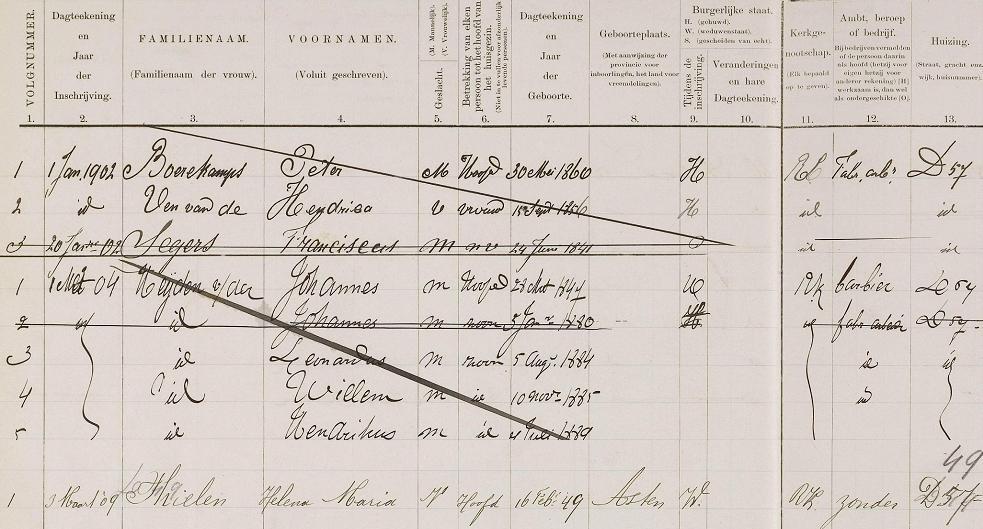 VOLGNUMMER.
Dagteekening en Jaar der Inschrijving.
FAMILIENAAM. (Familienaam der vrouw).
VOORNAMEN. (Voluit geschreven).
Geslacht. (M. Mannelijk). (V. Vrouwelijk).
Betrekking van elken persoon tot het hoofd van het huisgezin.
Dagteekening en Jaar der Geboorte.
Geboorteplaats. (Met aanwijzing der provincie voor inboorlingen, het land voor vreemdelingen).
Burgerlijke staat. H. (gehuwd). W. (weduwenstaat). S. (gescheiden van echt).
Tijdens de inschrijving.
Veranderingen en hare Dagteekening.
Kerkgenootschap. (Elk bepaald op te geven).
Ambt, beroep of bedrijf.
Bij bedrijven vermelden of de persoon daarin als hoofd (hetzij voor eigen hetzij voor andere rekening) [H] werkzaam is, dan wel als ondergeschikte (O).
Huizing. (Straat, gracht enz. wijk, huisnummer).
1. 2. 3. 4. 5. 6. 7. 8. 9. 10. 11. 12. 13.
1 1 Jan. 1902 Boerekamps Peter M Hoofd 30 Mei 1860 H RK Fabr. arb. D 57
2 id Ven van de Hendrica V vrouw 1856 H id id
3 20 02 Segers Franciscus M 24 Juni 1841 id id
1 04 Heijden v/der Johannes M Hoofd 28 1847 W RK barbier D 57
2 id Johannes M zoon 5 Jan. 1880 W id fabr arbeider D 57
3 id Leonardus M zoon 5 Aug. 1884 id id
4 id Willem M id 10 Nov. 1885 id
5 id Hendrikus M id 4 Juli 1889
49
1 3 Maart '09 Thielen Helena Maria V Hoofd 16 Feb. 49 Asten W. RK zonder D 57